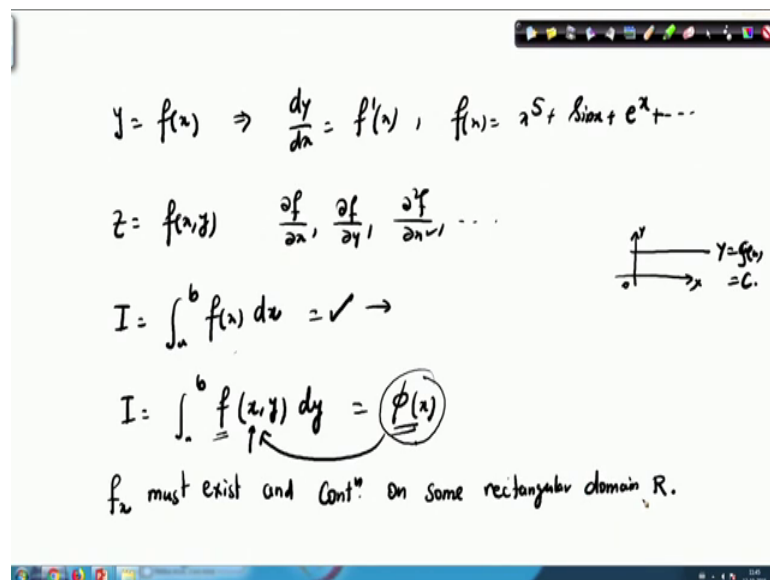 y = f(x) ⇒ dy/dx = f'(x), f(x) = x^5 + Sinx + e^x + ...
z = f(x,y) ∂f/∂x, ∂f/∂y, ∂²f/∂x², ...
Y
Y = f(x)
O X = C.
I = ∫_a^b f(x) dx = ✓ →
I = ∫_a^b f(x,y) dy = φ(x)
f_x must exist and Contⁿ. on some rectangular domain R.